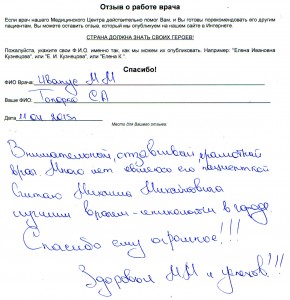 Отзыв о работе врача
Если врач нашего Медицинского Центра действительно помог Вам, и Вы готовы порекомендовать его другим
пациентам, Вы можете оставить отзыв, который мы опубликуем на нашем сайте в Интернете.
СТРАНА ДОЛЖНА ЗНАТЬ СВОИХ ГЕРОЕВ!
Пожалуйста, укажите свои Ф.И.О. именно так, как мы можем их опубликовать. Например: "Елена Ивановна
Кузнецова", или "Е. И. Кузнецова", или "Елена К."
Спасибо!
ФИО Врача: ММ
Ваше ФИО СА
Дата 2015г.
Место для Вашего отзыва:
Внимательный, отзывчивый, грамотный
врач. Много лет являюсь его пациенткой
Считаю Михаила
лучшим врачом в городе.
Спасибо ему огромное!!!
Здоровья ММ и успехов!!!